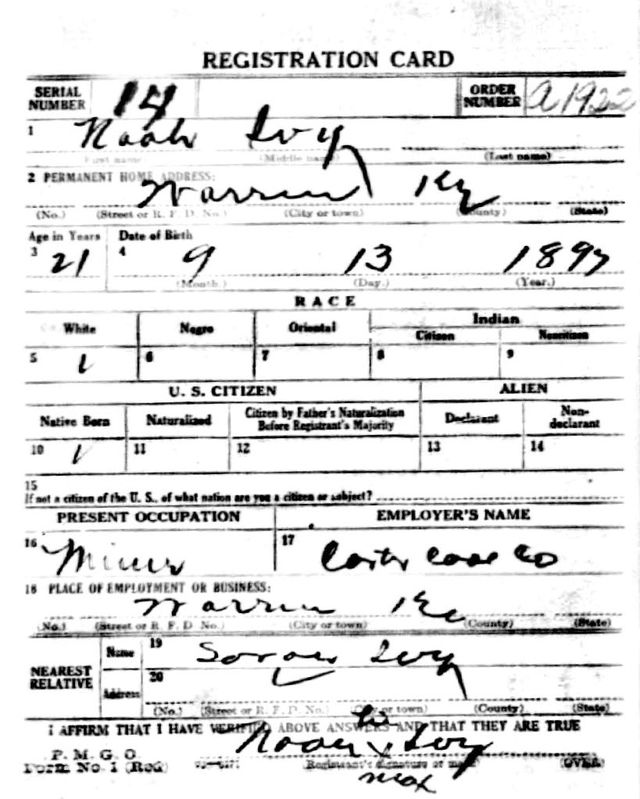 REGISTRATION CARD
SERIAL NUMBER 14 ORDER NUMBER A1922
1 Noah Ivy
First name) (Middle name) (Last name)
2 PERMANENT HOME ADDRESS:
Warren Ky
(No.) (Street or R. F. D. No.) (City or town) (County) (State)
Age in Years Date of Birth
3 21 4 9 13 1897
(Month.) (Day.) (Year.)
RACE
White Negro Oriental Indian
Citizen Noncitizen
5 6 7 8 9
U. S. CITIZEN ALIEN
Native Born Naturalized Citizen by Father's Naturalization Before Registrant's Majority Declarant Non-declarant
10 11 12 13 14
15
If not a citizen of the U. S., of what nation are you a citizen or subject?
PRESENT OCCUPATION EMPLOYER'S NAME
16 Miner 17 Coal Co
18 PLACE OF EMPLOYMENT OR BUSINESS:
Warren Ky
(No.) (Street or R. F. D. No.) (City or town) (County) (State)
NEAREST RELATIVE Name 19 Ivy
Address 20
(No.) (Street or R. F. D. No.) (City or town) (County) (State)
I AFFIRM THAT I HAVE VERIFIED ABOVE ANSWERS AND THAT THEY ARE TRUE
P. M. G. O. his
Form No. 1 (Red) Noah x Ivy
Registrant's signature or mark (OVER)